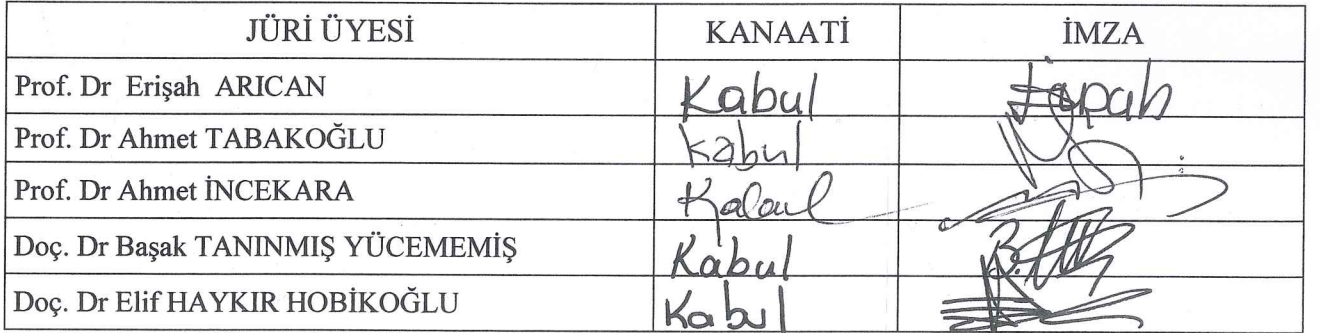 JÜRİ ÜYESİ KANAATİ İMZA
Prof. Dr Erişah ARICAN Kabul
Prof. Dr Ahmet TABAKOĞLU Kabul
Prof. Dr Ahmet İNCEKARA Kabul
Doç. Dr Başak TANINMIŞ YÜCEMEMİŞ Kabul
Doç. Dr Elif HAYKIR HOBİKOĞLU Kabul